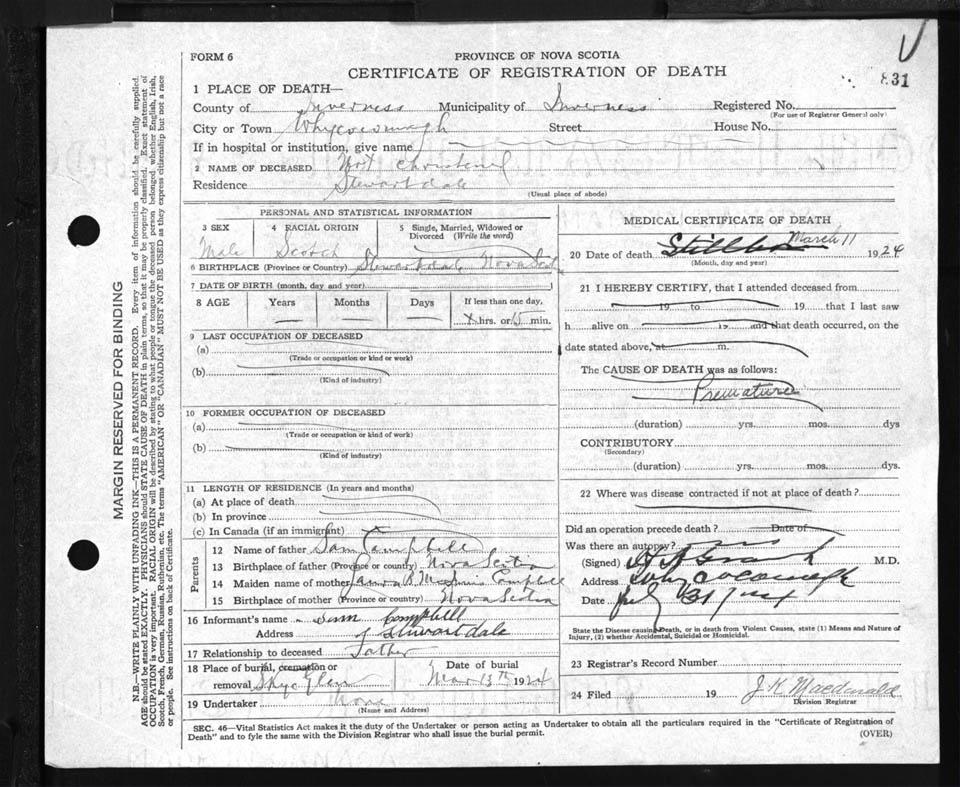 FORM 6
PROVINCE OF NOVA SCOTIA
CERTIFICATE OF REGISTRATION OF DEATH
831
1 PLACE OF DEATH—
County of Inverness Municipality of Inverness Registered No.
(For use of Registrar General only)
City or Town Whycocomagh Street House No.
If in hospital or institution, give name
2 NAME OF DECEASED Not Christened
Residence Stewartdale
(Usual place of abode)
MARGIN RESERVED FOR BINDING
N.B.—WRITE PLAINLY WITH UNFADING INK—THIS IS A PERMANENT RECORD. Every item of information should be carefully supplied.
AGE should be stated EXACTLY. PHYSICIANS should STATE CAUSE OF DEATH in plain terms, so that it may be properly classified. Exact statement of
OCCUPATION is very important. RACIAL ORIGIN will be described by stating to what people or tongue the deceased person belonged, whether English, Irish,
Scotch, French, German, Russian, Ruthenian, etc. The terms "AMERICAN" OR "CANADIAN" MUST NOT BE USED as they express citizenship but not a race
or people. See instructions on back of Certificate.
PERSONAL AND STATISTICAL INFORMATION
3 SEX 4 RACIAL ORIGIN 5 Single, Married, Widowed or
Divorced (Write the word)
Male Scotch
6 BIRTHPLACE (Province or Country) Stewartdale Nova Scotia
7 DATE OF BIRTH (month, day, and year)
8 AGE Years Months Days If less than one day,
hrs. or 15 min.
9 LAST OCCUPATION OF DECEASED
(a)
(Trade or occupation or kind or work)
(b)
(Kind of industry)
10 FORMER OCCUPATION OF DECEASED
(a)
(Trade or occupation or kind of work)
(b)
(Kind of industry)
11 LENGTH OF RESIDENCE (In years and months)
(a) At place of death
(b) In province
(c) In Canada (if an immigrant)
Parents
12 Name of father Sam Campbell
13 Birthplace of father (Province or country) Nova Scotia
14 Maiden name of mother Campbell
15 Birthplace of mother (Province or country) Nova Scotia
16 Informant's name Sam Campbell
Address Stewartdale
17 Relationship to deceased Father
18 Place of burial, cremation or Date of burial
removal Skye Glen Mar 13th 1924
19 Undertaker None
(Name and Address)
MEDICAL CERTIFICATE OF DEATH
20 Date of death March 11 1924
(Month, day and year)
21 I HEREBY CERTIFY, that I attended deceased from
19 to 19 that I last saw
h alive on 19 and that death occurred, on the
date stated above, at m.
The CAUSE OF DEATH was as follows:
Premature
(duration) yrs. mos. dys
CONTRIBUTORY
(Secondary)
(duration) yrs. mos. dys.
22 Where was disease contracted if not at place of death?
Did an operation precede death? Date of
Was there an autopsy?
(Signed) M.D.
Address
Date
State the Disease causing Death, or in death from Violent Causes, state (1) Means and Nature of
Injury, (2) whether Accidental, Suicidal or Homicidal.
23 Registrar's Record Number
24 Filed 19 J K Macdonald
Division Registrar
SEC. 46—Vital Statistics Act makes it the duty of the Undertaker or person acting as Undertaker to obtain all the particulars required in the "Certificate of Registration of
Death" and to fyle the same with the Division Registrar who shall issue the burial permit.
(OVER)